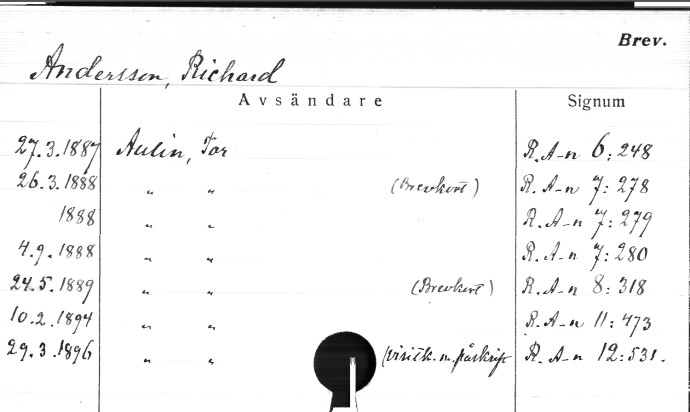 Brev.
Andersson, Richard
Avsändare Signum
27.3.1887 Aulin, Tor R. A-n 6:248
26.3.1888 " " (Brevkort) R. A-n 7:278
1888 " " R. A-n 7:279
4.9.1888 " " R. A-n 7:280
24.5.1889 " " (Brevkort) R. A-n 8:318
10.2.1894 " " R. A-n 11:473
29.3.1896 " " (visitk. m. påskrift R. A-n 12:531.